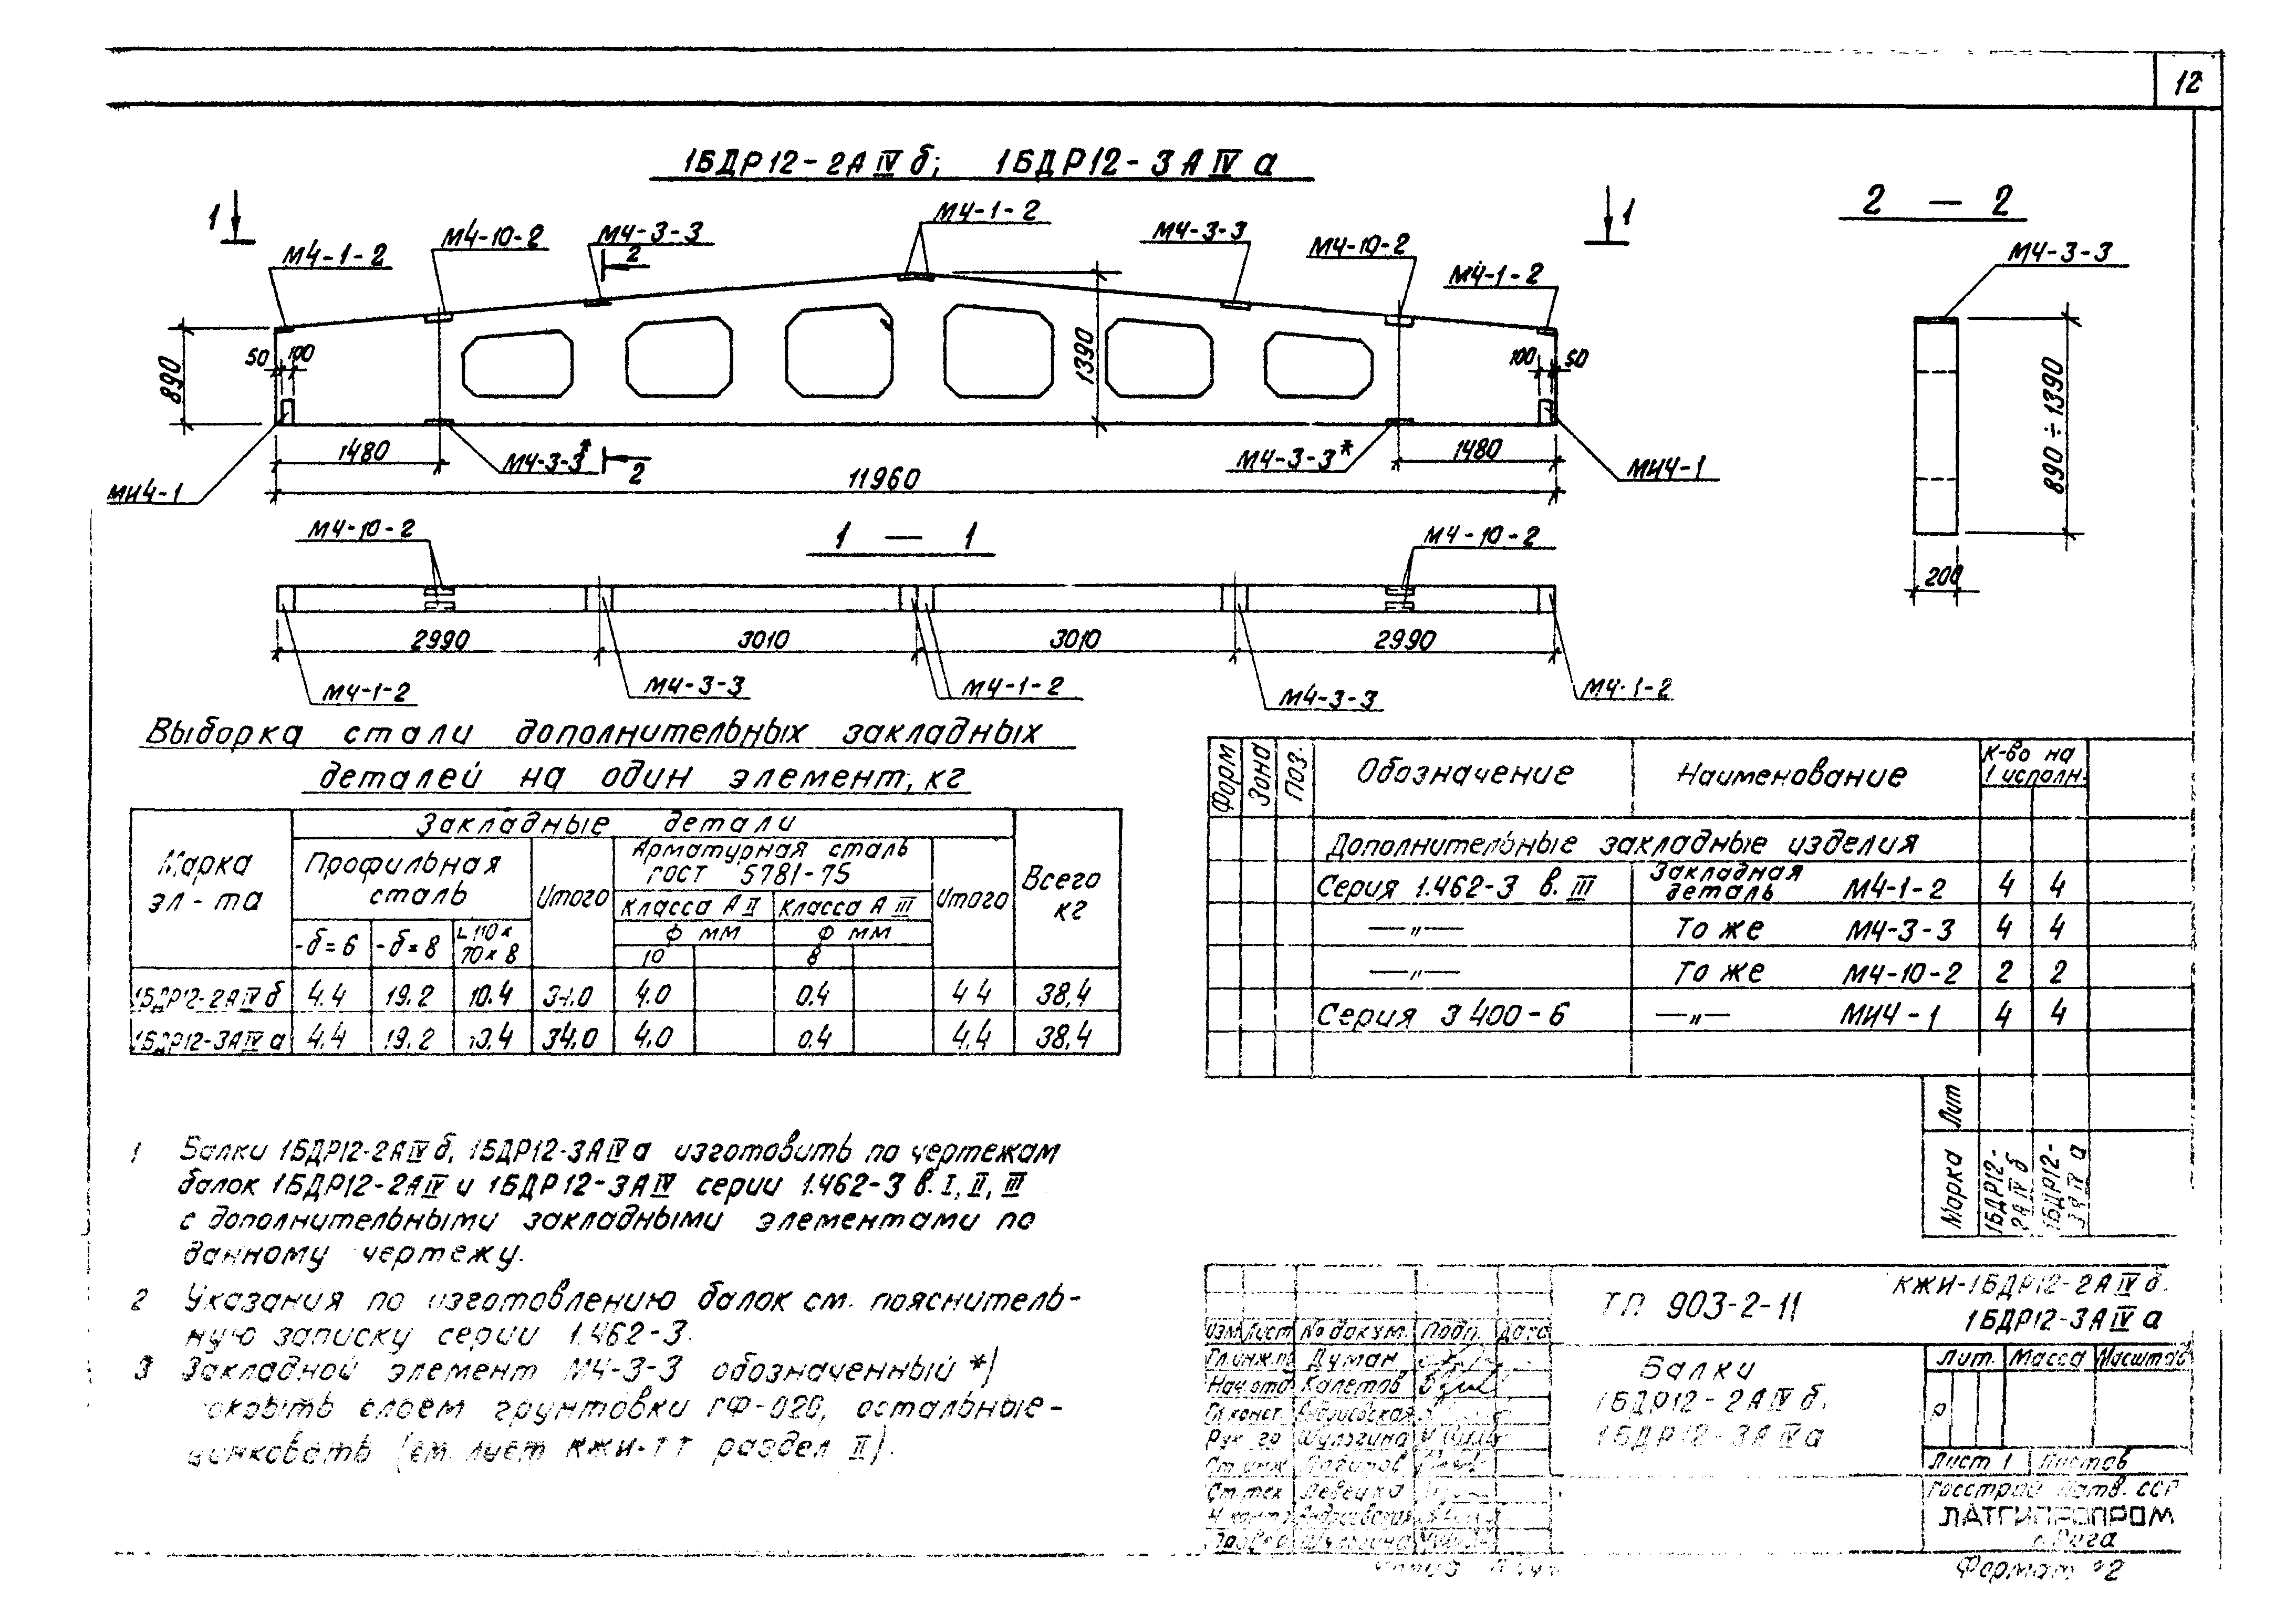 12
1БДР12-2АIVб; 1БДР12-3АIVа
1
1
2 — 2
М4-1-2
М4-10-2
М4-3-3
2
М4-1-2
М4-3-3
М4-10-2
М4-1-2
М4-3-3
890
50
100
1390
100
50
890÷1390
1480
М4-3-3*
2
М4-3-3*
1480
МИ4-1
МИ4-1
11960
200
М4-10-2
1 — 1
М4-10-2
2990
3010
3010
2990
М4-1-2
М4-3-3
М4-1-2
М4-3-3
М4-1-2
Выборка стали дополнительных закладных
деталей на один элемент, кг
Марка эл-та
Закладные детали
Всего кг
Профильная сталь
Итого
Арматурная сталь ГОСТ 5781-75
Итого
Класса АII
Класса АIII
Ф мм
Ф мм
-δ=6
-δ=8
L 110х70х8
10
8
1БДР12-2АIVб 4.4 19.2 10.4 34.0 4.0 0.4 4.4 38,4
1БДР12-3АIVа 4.4 19.2 10.4 34.0 4.0 0.4 4.4 38.4
Форм
Зона
Поз.
Обозначение
Наименование
К-во на 1 исполн.
Дополнительные закладные изделия
Серия 1.462-3 в. III Закладная деталь М4-1-2 4 4
—"— То же М4-3-3 4 4
—"— То же М4-10-2 2 2
Серия 3 400-6 —"— МИ4-1 4 4
Лит
Марка
1БДР12-2АIVб
1БДР12-3АIVа
1 Балки 1БДР12-2АIVб, 1БДР12-3АIVа изготовить по чертежам
балок 1БДР12-2АIV и 1БДР12-3АIV серии 1.462-3 в. I, II, III
с дополнительными закладными элементами по
данному чертежу.
2 Указания по изготовлению балок см. пояснитель-
ную записку серии 1.462-3.
3 Закладной элемент М4-3-3 обозначенный *)
покрыть слоем грунтовки ГФ-020, остальные -
цинковать (см. лист КЖИ-ТТ раздел II).
ТП 903-2-11
КЖИ-1БДР12-2АIVб.
1БДР12-3АIVа
Изм Лист № докум. Подп. Дата
Гл.инж.пр Думан
Нач.отд Калетов
Гл конст.
Рук. гр Шулогина
Ст.инж
Ст.тех Левецка
Н.контр
Балки
1БДР12-2АIVб.
1БДР12-3АIVа
Лит. Масса Масштаб
Р
Лист 1 Листов
Госстрой Латв. ССР
ЛАТГИПРОПРОМ
г. Рига
Формат